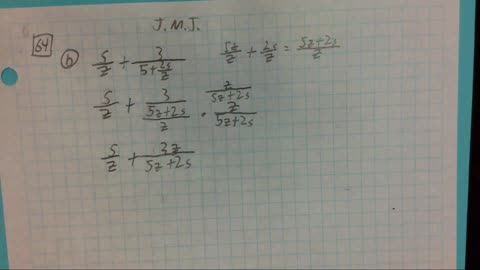 J.M.J.
64
h s/z + 3/(5+2s/z) 5z/z + 2s/z = (5z+2s)/z
s/z + 3/((5z+2s)/z) · (z/(5z+2s))/(z/(5z+2s))
s/z + 3z/(5z+2s)